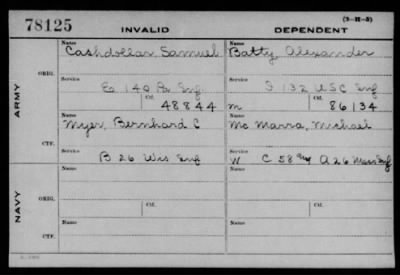 78125
INVALID
DEPENDENT
(3-21-5)
ARMY
ORIG.
Name
Cashdollar Samuel
Name
Batty, Alexander
Service
Co 140 Pa Inf
Service
S 132 USC Inf
Ctf.
48844
m
Ctf.
86134
CTF.
Name
Myer, Bernhard C
Name
Mc Marra, Michael
Service
B 26 Wis Inf
Service
W C 58 A 26 Mass Inf
NAVY
ORIG.
Name
Name
Service
Ctf.
Service
Ctf.
CTF.
Name
Name